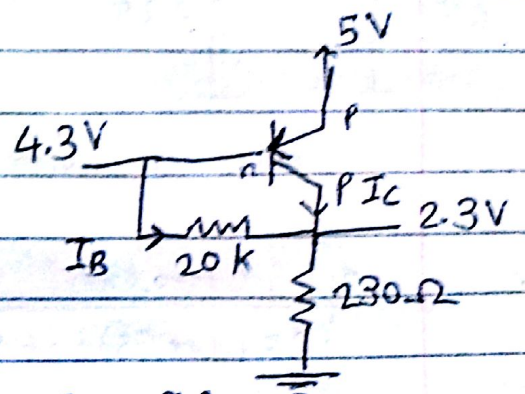 5V
P
4.3V
n
P IC
2.3V
IB
20K
230Ω